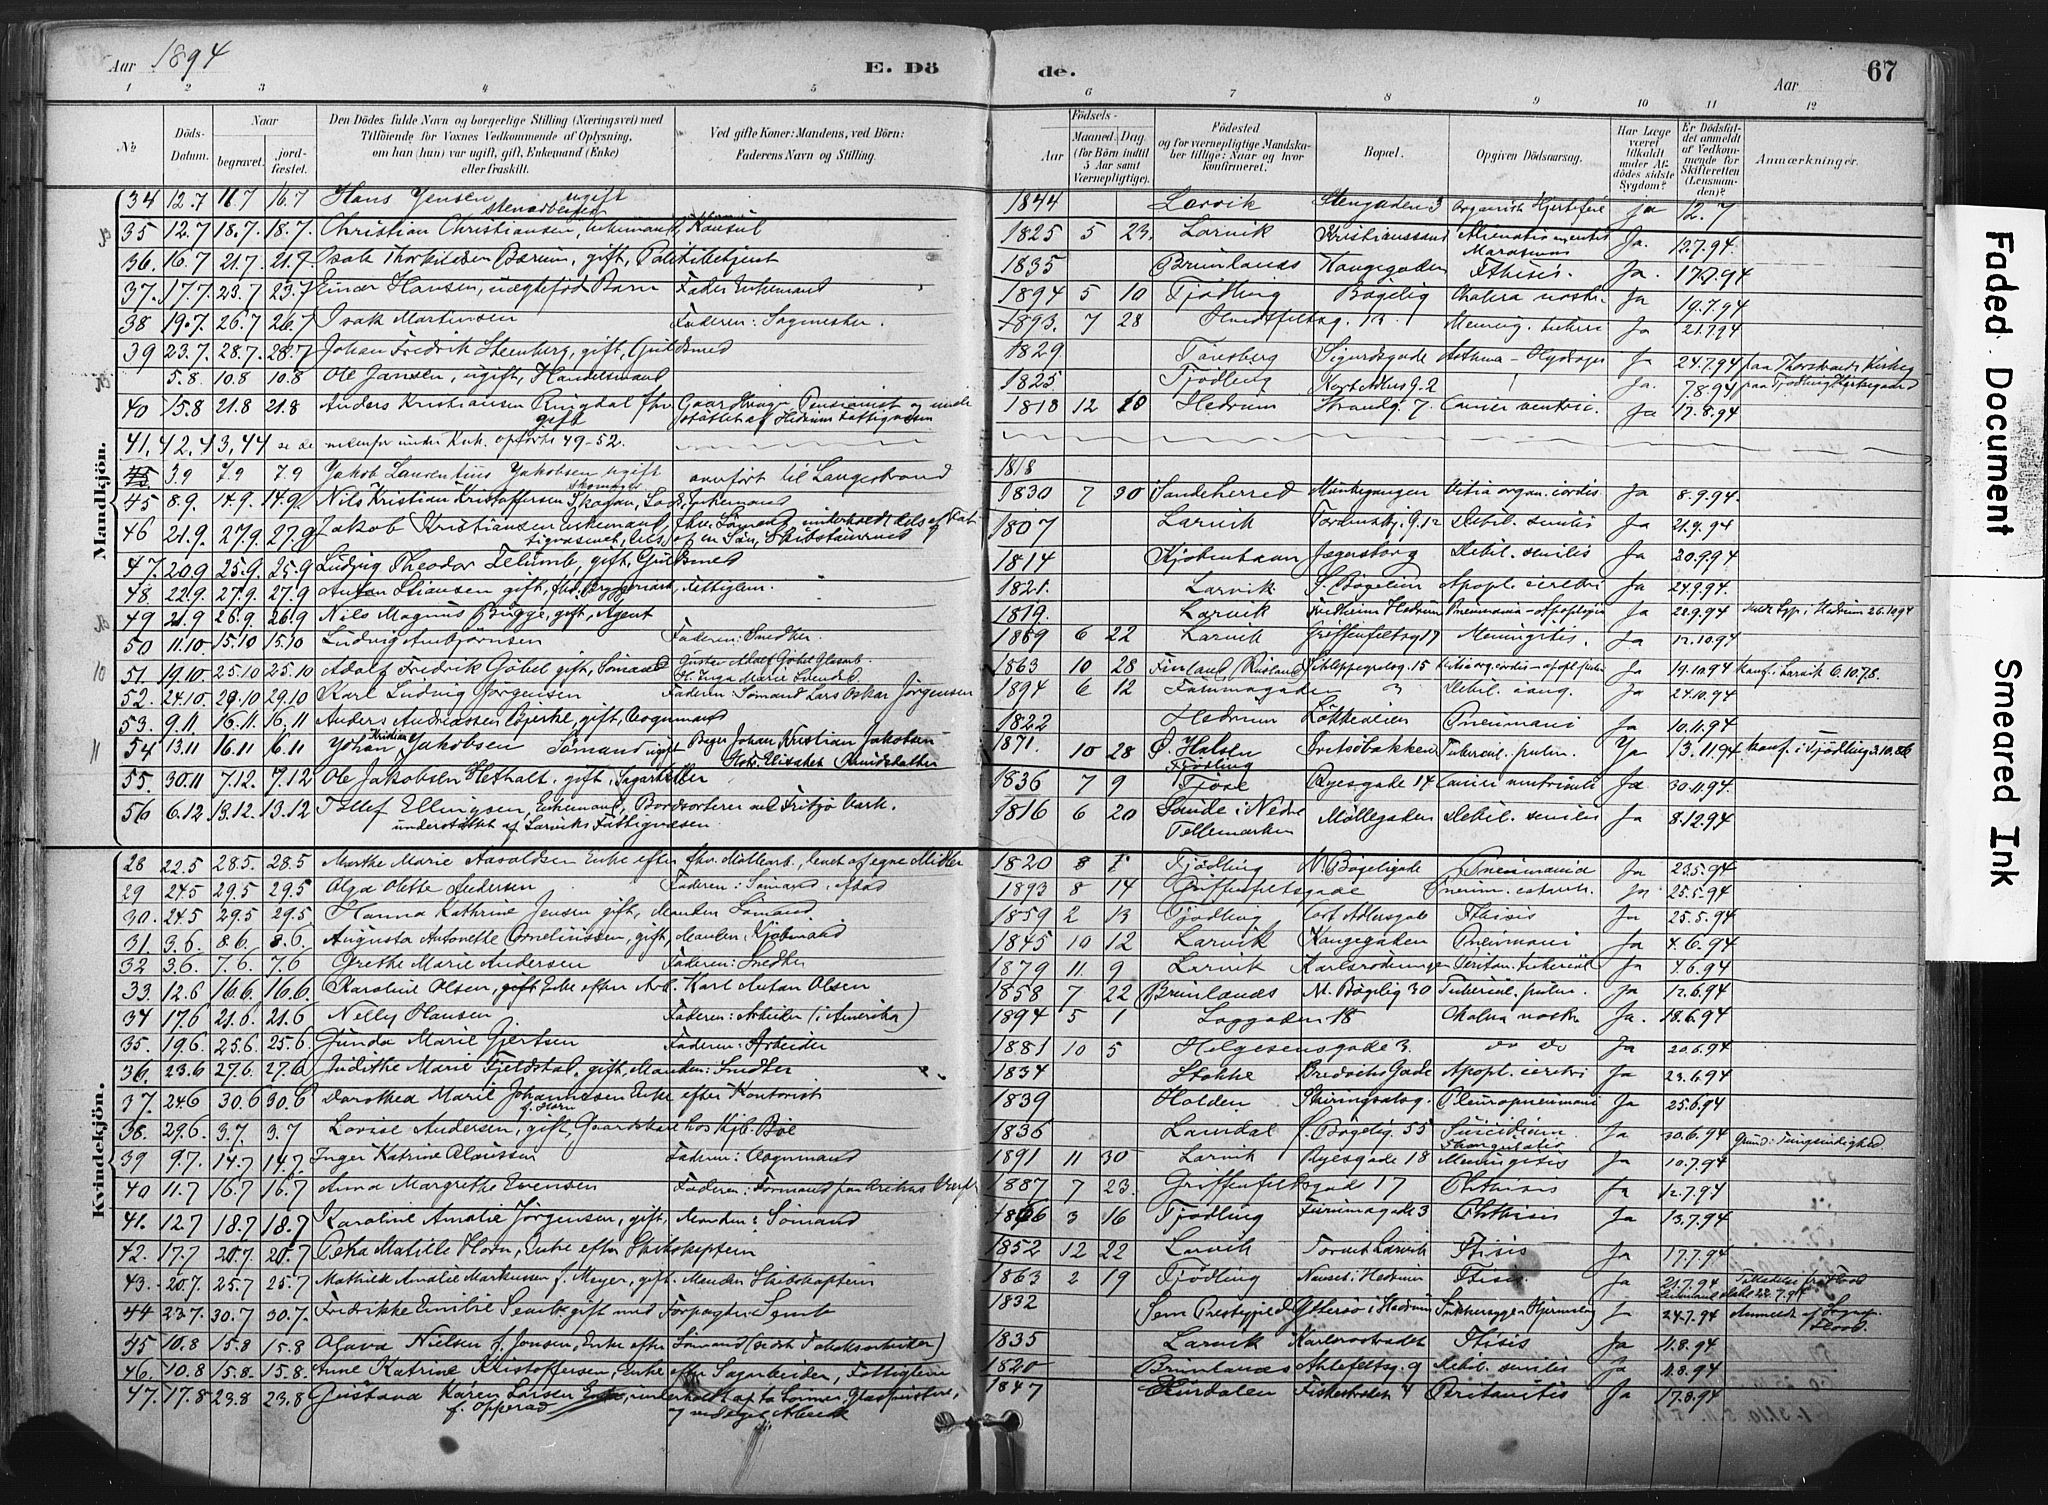 Aar 1894 E. Dö de. Aar 67
1 2 3 4 5 6 7 8 9 10 11 12
№ Döds-Datum. Naar begravet. jordfæstet. Den Dödes fulde Navn og borgerlige Stilling (Næringsvei) med Tilföiende for Voxnes Vedkommende af Oplysning, om han (hun) var ugift, gift, Enkemand (Enke) eller fraskilt. Ved gifte Koner: Mandens, ved Börn: Faderens Navn og Stilling. Födsels- Aar Maaned, Dag (for Börn indtil 5 Aar samt Værnepligtige). Födested og for værnepligtige Mandskaber tillige: Naar og hvor konfirmeret. Bopæl. Opgiven Dödsaarsag. Har Læge været tilkaldt under Afdödes sidste Sygdom? Er Dödsfaldet anmeldt af Vedkommende for Skifteretten (Lensmanden)? Anmærkninger.
Mandkjön.
34 12.7 16.7 16.7 Hans Jensen ugift stenarbeider 1844 Larvik Stengaden 3 Organisk Hjertefeil Ja 12.7
35 12.7 18.7 18.7. Christian Christiansen, Enkemand, Konsul 1825 5 23. Larvik Kristianssand Marasmus Ja. 12.7.94
36. 16.7 21.7 21.7. Isak Thorkildsen Bærum, gift, Politibetjent 1835 Brunlanæs Kongegaden Fthisis. Ja. 17.7.94
37. 17.7. 23.7 23.7 Einar Hansen, uægtefød Barn Fader Enkemand 1894 5 10 Tjødling Bøgelig Cholera nostr. Ja 19.7.94
38 19.7. 26.7 26.7 Isak Martinsen Faderen: Sagmester. 1893. 7 28 Hvidtfeltsg. 13. Mening. tuberc. Ja 21.7.94
39 23.7. 28.7. 28.7 Johan Fredrik Steenberg, gift, Guldsmed 1829 Tønsberg Sigurdsgade Asthma - Hydrops Ja 24.7.94 paa Thorstrands Kirkeg
5.8. 10.8 10.8 Ole Jansen, ugift, Handelsmand 1825. Tjødling Kort Adlers g. 2 Ja. 7.8.94 paa Tjødling Kirkegaard
40 15.8 21.8 21.8 Anders Kristiansen Ringdal fhv. gift Gaardbruger Pensionist og understøttet af Hedrum Fattigvæsen 1818 12 20 Hedrum Strandg. 7. Cancer ventric. Ja 17.8.94
41, 42, 43, 44 se de nedenfor under Kvk. opførte 49-52.
3.9 7.9 7.9 Jakob Laurentius Jakobsen ugift skomager overført til Langestrand 1818
45 8.9. 14.9. 14.9. Nils Kristian Kristoffersen Skogan, Enkemand 1830 7 30 Sandeherred Munkegangen Vitia organ. cordis Ja 8.9.94.
46 21.9. 27.9. 27.9 Jakob Kristiansen Enkemand, fhv. Sømand, underholdt dels af Fattigvæsenet, dels af en Søn, Skibstømmermand 1807 Larvik Tordenskj. g. 12 Debil. senilis Ja 21.9.94
47. 20.9 25.9. 25.9 Ludvig Theodor Telumb, gift, Guldsmed 1814 Kjøbenhavn Jægersborg Debil. senilis Ja 20.9.94
48. 22.9. 27.9 27.9 Anton Stiansen gift, fhv. Fattiglem. 1821. Larvik S. Bøgelien Apopl. cerebri Ja 24.9.94.
49 21.9 26.9 26.9 Nils Magnus Brügge, gift, Agent 1819. Larvik Hedrum Pneumonia - Apoplexia Ja 22.9.94
50 11.10 15.10 15.10 Ludvig Ambjørnsen Faderen: Snedker. 1889 6 22 Larvik Griffenfeltsg 17 Meningitis. Ja 12.10.94
51. 19.10. 25.10 25.10 Adolf Fredrik Gøbel gift, Sømand Gustav Adolf Gøbel Glasarb. 1863 10 28 Finland (Rusland) Schleppegrelsg. 15 Vitia org. cordis - apopl. pulm Ja 19.10.94 Konf. i Larvik 6.10.78.
52. 24.10. 29.10 29.10 Karl Ludvig Jørgensen Faderen Sømand Lars Oskar Jørgensen 1894 6 12 Fommagaden 3 Debil. cong. Ja 24.10.94
53. 9.11. 16.11. 16.11 Anders Andreassen Bjerke, gift, Vognmand 1822 Hedrum Løkkedeien Pneumoni Ja 10.11.94
54 13.11 16.11 16.11 Johan Kristian Jakobsen Sømand ugift Bager Johan Kristian Jakobsen 1871. 10 28 Ø. Halsen Tjødling Fritsøbakken Tubercul. pulm. Ja 13.11.94 konf. i Tjødling 3.10.86
55. 30.11 7.12. 7.12 Ole Jakobsen Hethalt. gift, Sagarbeider 1836 7 9 Tjose Ryesgade 14 Cancer ventriculi Ja 30.11.94
56 6.12 13.12. 13.12 Tollef Ellingsen, Enkemand, Bordsorterer ved Fritzø Værk. understøttet af Larviks Fattigvæsen. 1816 6 20 Sande i Nedre Tellemarken Møllegaden Debil. senilis Ja 8.12.94
Kvindekjön.
28 22.5 28.5 28.5 Marthe Marie Aasoldsen Enke efter fhv. Møllearb., levet af egne Midler 1820 8 7. Tjødling N. Bøgeligade Pneumonia Ja 23.5.94
29 24.5 29.5 29.5. Olga Olette Andersen Faderen: Sømand, afdød 1893 8 14 Griffenfeltsgade Pneum. catarrh. Ja 25.5.94
30. 24.5 29.5 29.5. Hanna Kathrine Jensen gift, Manden Sømand 1859 2 13 Tjødling Cort Adlersgade Fthisis Ja 25.5.94
31. 3.6. 8.6. 8.6. Augusta Antonette Corneliussen, gift, Manden: Kjøbmand 1845 10 12 Larvik Kongegaden Pneumoni Ja 4.6.94
32 3.6. 7.6. 7.6 Grethe Marie Andersen Faderen: Snedker 1879 11. 9 Larvik Karlsrodningen Periton. tubercul. Ja 4.6.94
33. 12.6 16.6 16.6. Karoline Olsen, gift Enke efter Arb. Karl Anton Olsen 1858 7 22 Brunlanæs N. Bøgelig 30 Tubercul. pulm. Ja 12.6.94
34 17.6 21.6. 21.6 Nelly Hansen Faderen: Arbeider (i Amerika) 1894 5 1 Laggaden 18 Cholera nostr. Ja. 18.6.94
35. 19.6. 25.6. 25.6 Gunda Marie Gjertsen Faderen: Arbeider 1881 10 5 Helgesensgade 3. do do Ja 20.6.94
36. 23.6 27.6. 27.6 Judithe Marie Fjeldstal, gift, Manden: Snedker 1834 Stokke Bredochs Gade Apopl. cerebri Ja 23.6.94
37. 24.6 30.6 30.6 Dorothea Marie Johannesen f. Horn Enke efter Kontorist 1839 Halden Skiringsalsg. Pleuropneumoni Ja 25.6.94
38. 29.6. 3.7. 3.7 Lovise Andersen, gift, Gaardskarl hos Kjb. Bøe 1836 Laurdal S. Bøgelig. 55 Suicidium Strangulatio Ja 30.6.94 Grund: Tungsindighed
39 9.7. 14.7 14.7. Inger Katrine Olaussen Faderen: Vognmand 1891 11 30 Larvik Ryesgade 18 Meningitis Ja 10.7.94
40 11.7 16.7. 16.7 Anna Margrethe Evensen Faderen: Formand paa 1887 7 23. Griffenfeltsgade 17 Phthisis Ja 12.7.94
41. 12.7 18.7 18.7. Karoline Amalie Jørgensen, gift, Manden: Sømand 1866 3 16 Tjødling Furumogade 3 Phthisis Ja 13.7.94
42. 17.7. 20.7. 20.7 Petra Matilde Horn, Enke efter Skibskaptein 1852 12 22 Larvik Torvet Larvik Ftisis Ja 17.7.94
43. 20.7. 25.7 25.7 Mathilde Amalie Markussen f. Meyer, gift, Manden Skibskaptein 1863 2 19 Tjødling Nanset i Hedrum Ftisis Ja 21.7.94
44 23.7. 30.7 30.7. Fredrikke Emilie Semb gift med Forpagter Semb 1832 Sem Prestegjeld Yttersø i Hedrum Ja 24.7.94 Anmeldt af
45 10.8 15.8 15.8 Olava Nielsen f. Jonsen, Enke efter Sømand (sidst Tobaksarbeider) 1835 Larvik Karlsrostrædet Ftisis Ja 11.8.94
46. 10.8 15.8 15.8 Anne Katrine Kristoffersen, Enke efter Sagarbeider, Fattiglem 1820 Brunlanæs Ahlefeltsg. 9 Debil. senilis Ja 11.8.94
47. 17.8 23.8 23.8 Gustava Karen Larsen f. Opperud Enke, underholdt af to Sønner, Glaspustere, og ved eget Arbeide 1847 Hurdalen Fiskestræden 4 Peritonitis Ja 17.8.94
Faded Document Smeared Ink